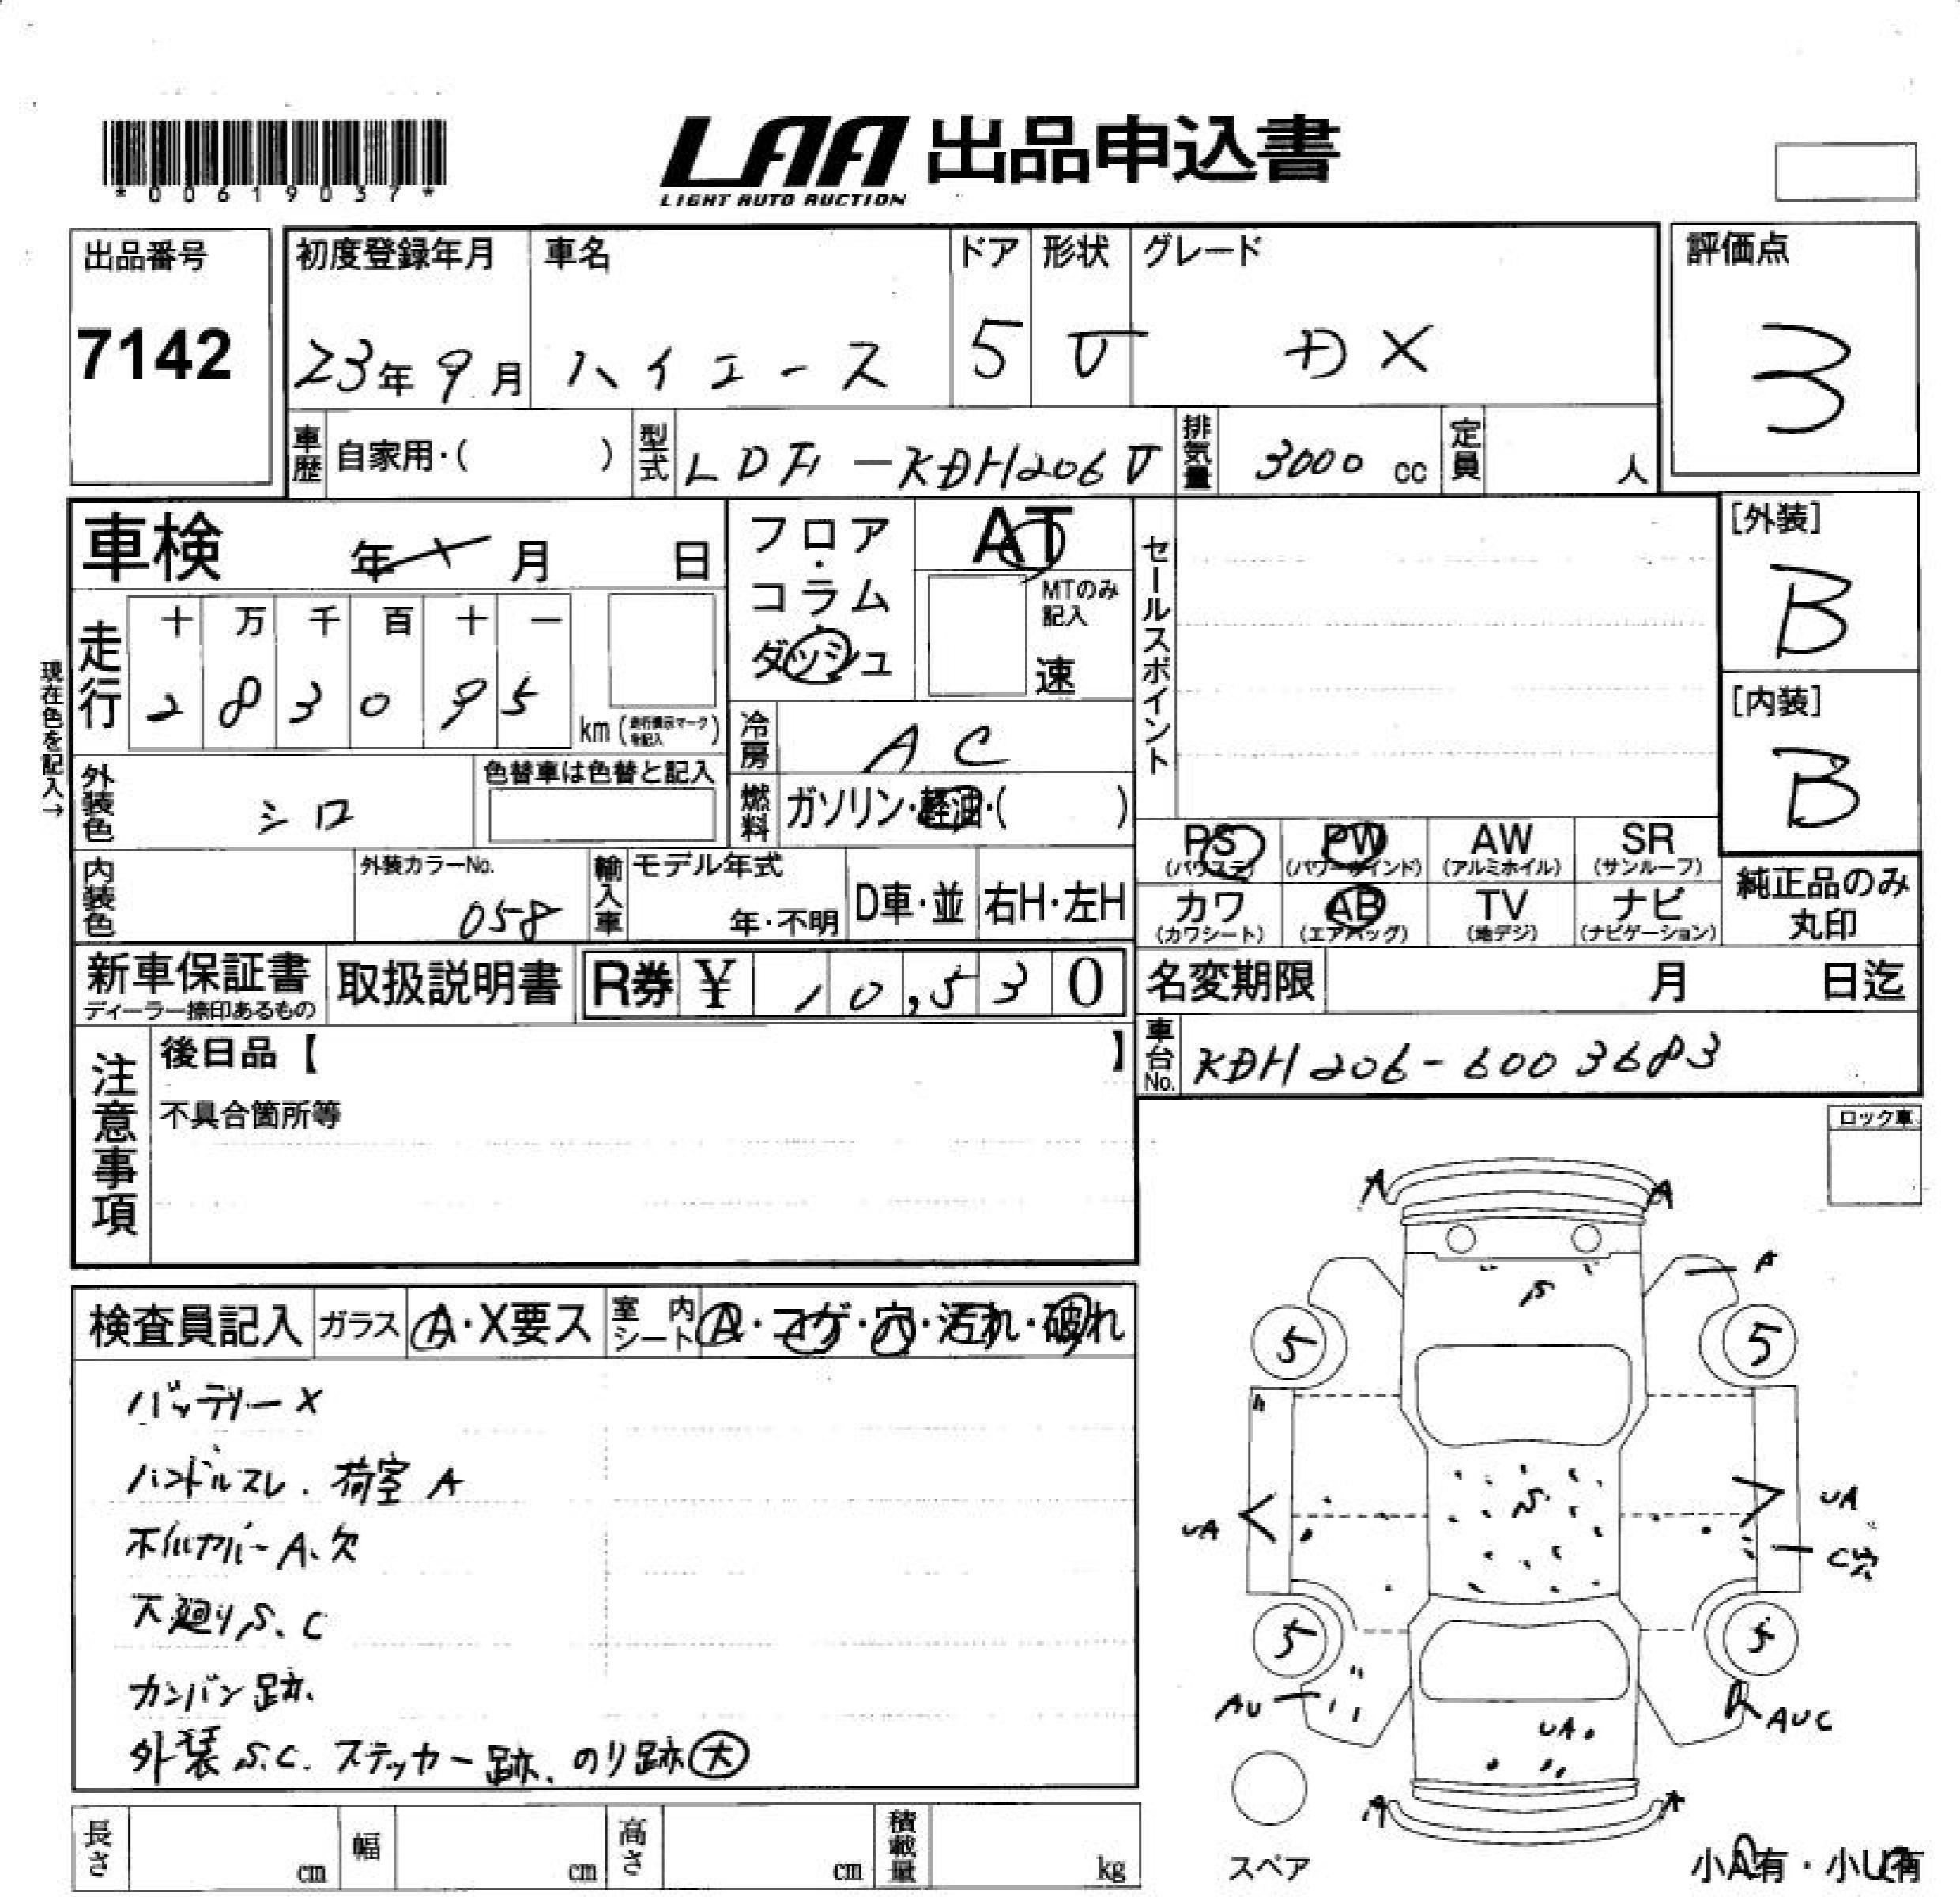 *00619037*
LAA 出品申込書
LIGHT AUTO AUCTION
出品番号
7142
初度登録年月
23年9月
車名
ハイエース
ドア
5
形状
V
グレード
DX
評価点
3
車歴
自家用・( )
型式
LDF-KDH206V
排気量
3000 cc
定員
人
車検
年 月 日
フロア・コラム
ダッシュ
AT
MTのみ
記入
速
セールスポイント
[外装]
B
[内装]
B
現在色を記入→
走行
十 万 千 百 十 一
2 8 3 0 9 5
km (走行慣示マーク
を記入)
冷房
AC
外装色
シロ
色替車は色替と記入
燃料
ガソリン・軽油・( )
PS
(パワステ)
PW
(パワーウインド)
AW
(アルミホイル)
SR
(サンルーフ)
内装色
外装カラーNo.
058
輸入車
モデル年式
年・不明
D車・並
右H・左H
カワ
(カワシート)
AB
(エアバッグ)
TV
(地デジ)
ナビ
(ナビゲーション)
純正品のみ
丸印
新車保証書
ディーラー捺印あるもの
取扱説明書
R券 ¥ 10,530
名変期限
月 日迄
注意事項
後日品【 】
不具合箇所等
車台No.
KDH206-6003683
ロック車
検査員記入
ガラス
A・X要ス
室内
シート
A・コゲ・穴・汚れ・破れ
バッテリーX
ハンドルスレ.荷室 A
ホイルカバーA、欠
下廻りS、C
カンバン跡.
外装S.C.ステッカー跡、のり跡大
A
A
A
S
5
5
S
UA
UA
C穴
5
5
AU
AUC
UA
A
A
スペア
小A有・小U有
長さ
cm
幅
cm
高さ
cm
積載量
kg